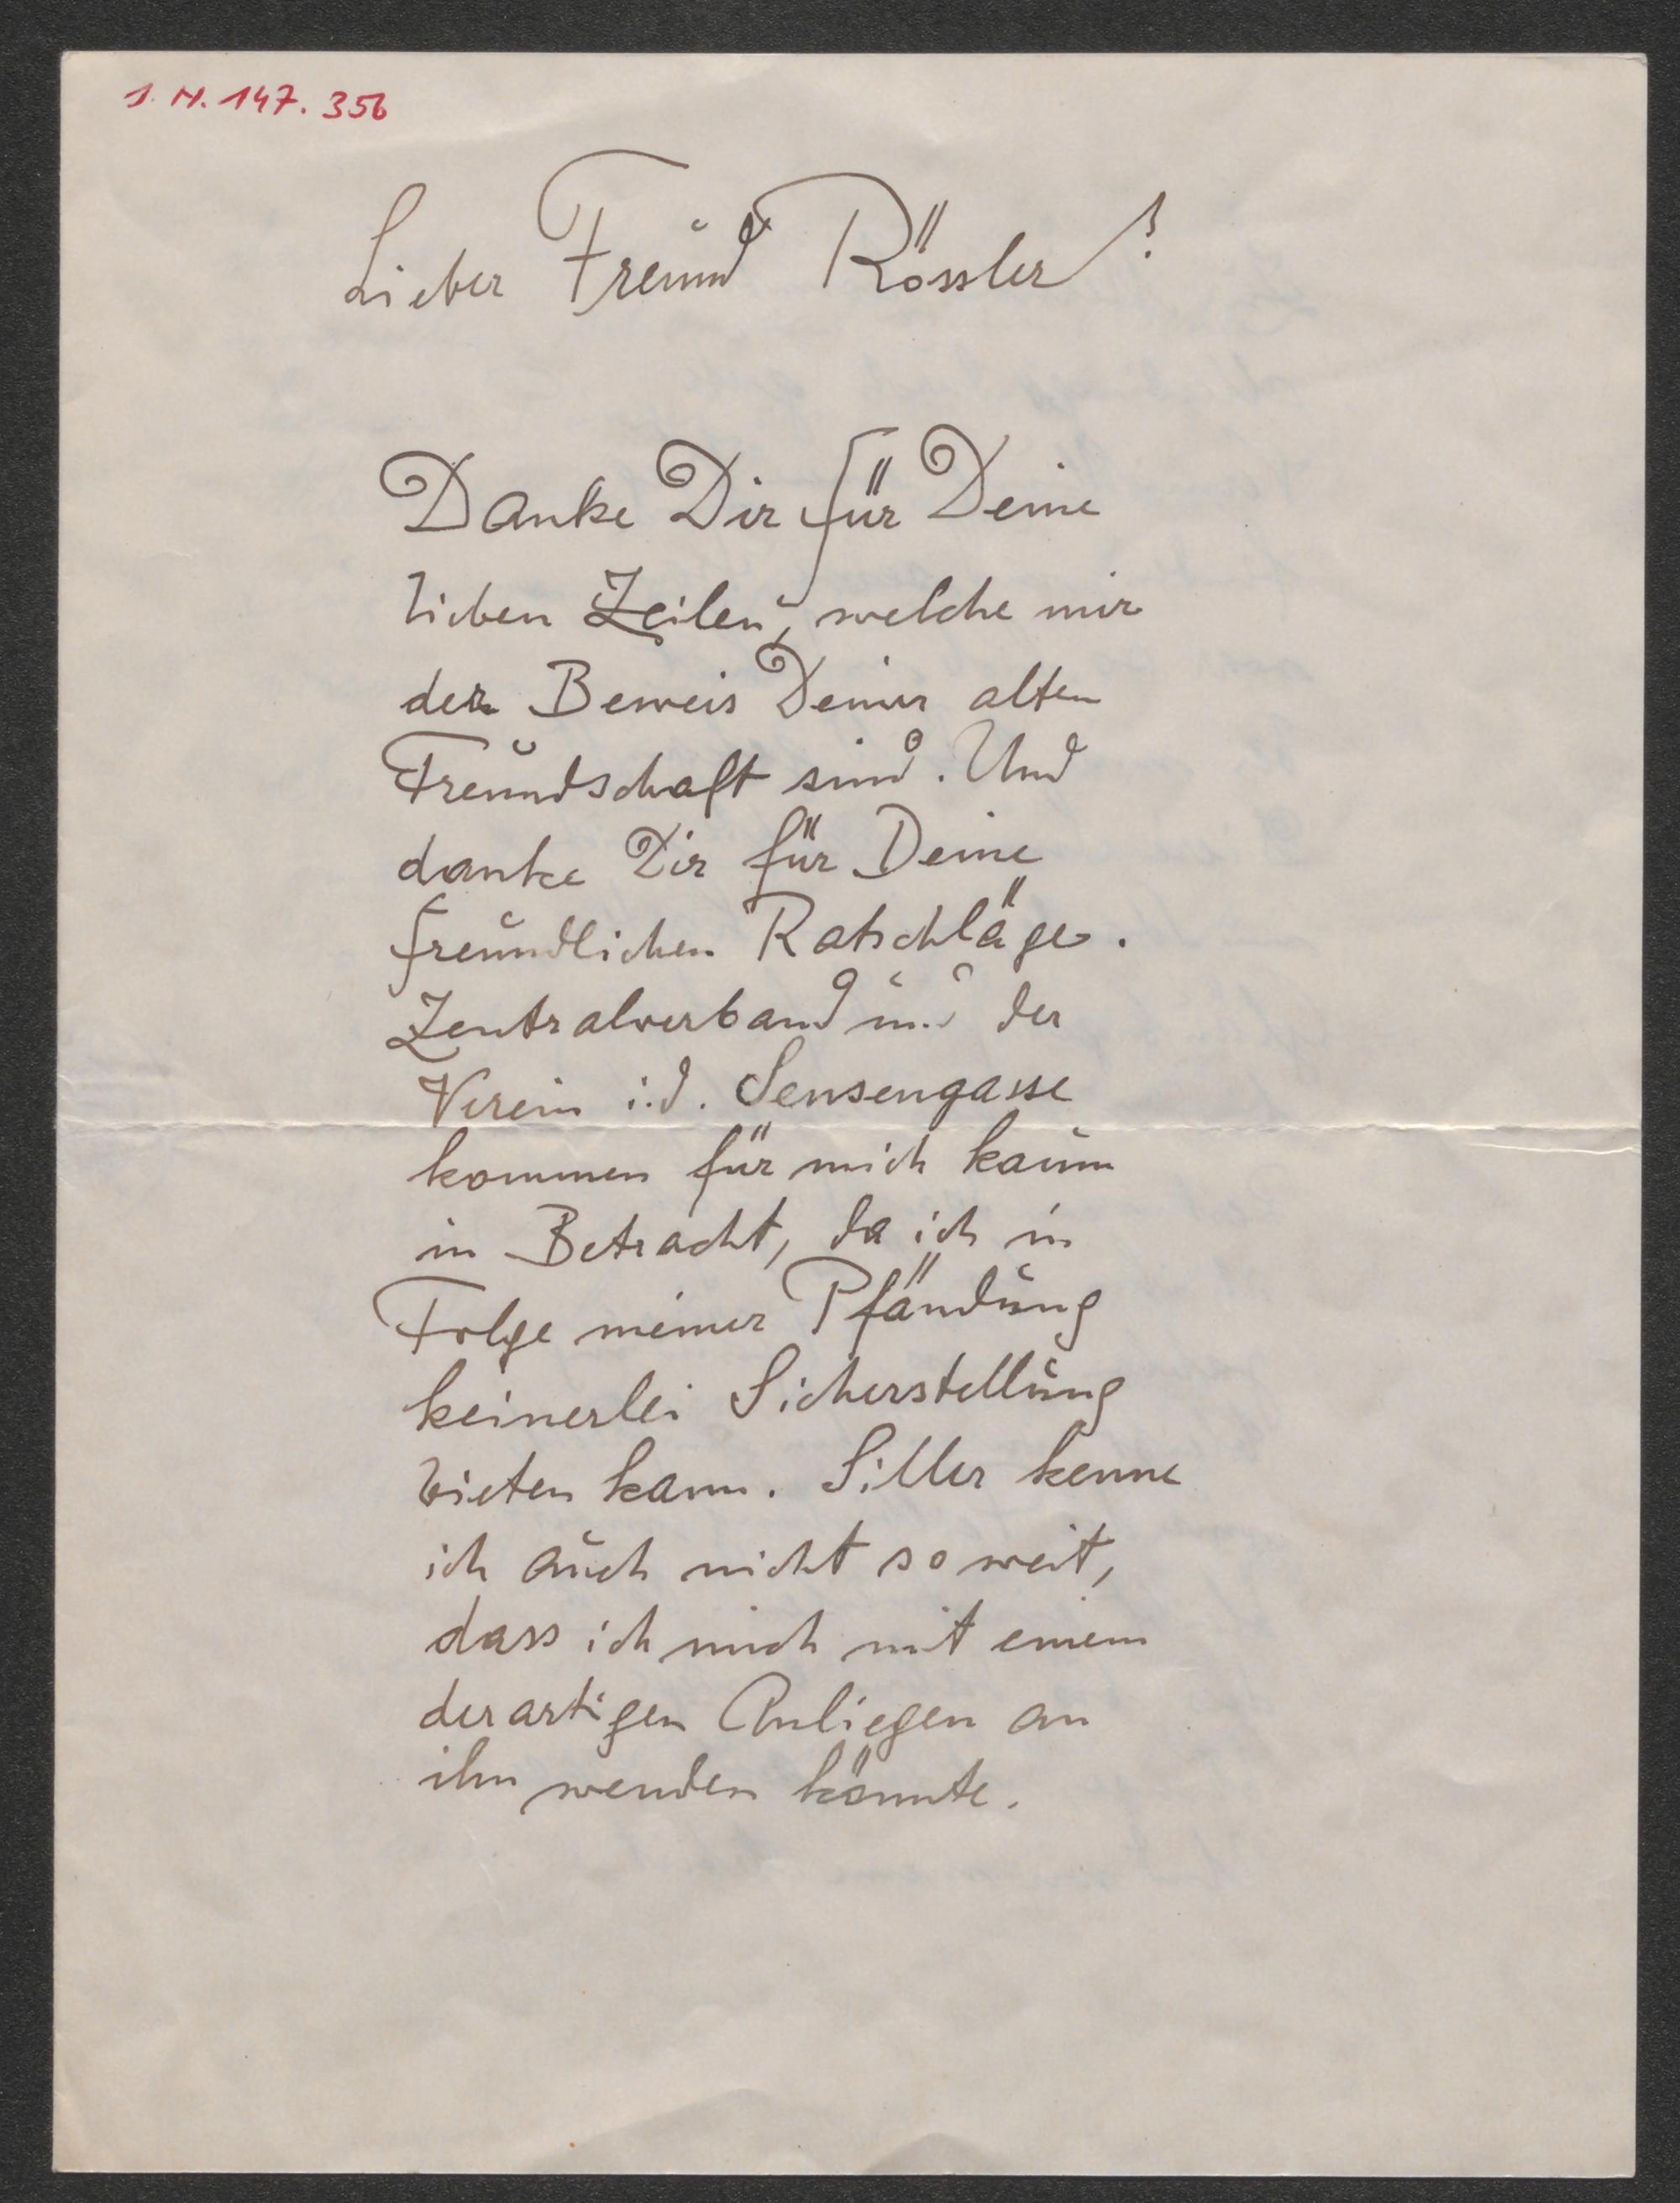 I. N. 147.356
Lieber Freund Rössler!
Danke Dir für Deine
lieben Zeilen, welche mir
der Beweis Deiner alten
Freundschaft sind. Und
danke Dir für Deine
freundlichen Ratschläge.
Zentralverband und der
Verein i.d. Sensengasse
kommen für mich kaum
in Betracht, da ich in
Folge meiner Pfändung
keinerlei Sicherstellung
bieten kann. Siller kenne
ich auch nicht so weit,
dass ich mich mit einem
derartigen Anliegen an
ihn wenden könnte.